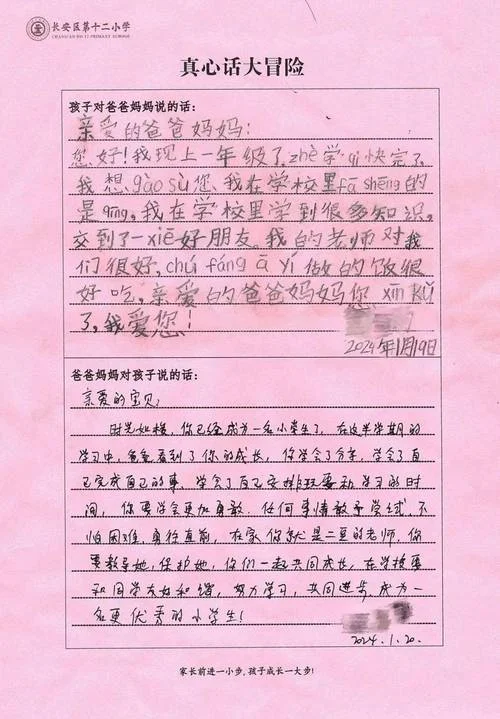 长安区第十二小学
真心话大冒险
孩子对爸爸妈妈说的话:
亲爱的爸爸妈妈:
您好!我现上一年级了,zhè学qī快完了,
我想gào sù您、我在学校里fā shēng的
是qing,我在学校里学到很多知识,
交到了一xiē好朋友。我的老师对我
们很好,chú fáng ā yí 做的饭很
好吃,亲爱的爸爸妈妈您xīn kǔ
了,我爱您!
2024年1月19日
爸爸妈妈对孩子说的话:
亲爱的宝贝:
时光如梭,你已经成为一名小学生了,在这半学期的
学习中,爸爸看到了你的成长,你学会了分享,学会了自
己完成自己的事、学会了自己安排玩耍和学习的时
间,你要学会更加勇敢,任何事情敢于尝试,不
怕困难,勇往直前,在家你就是二豆的老师,你
要教导她,保护她,你们一起共同成长,在学校要
和同学友好和睦,努力学习,共同进步,成为一
名更优秀的小学生!
2024.1.20.
家长前进一小步,孩子成长一大步!